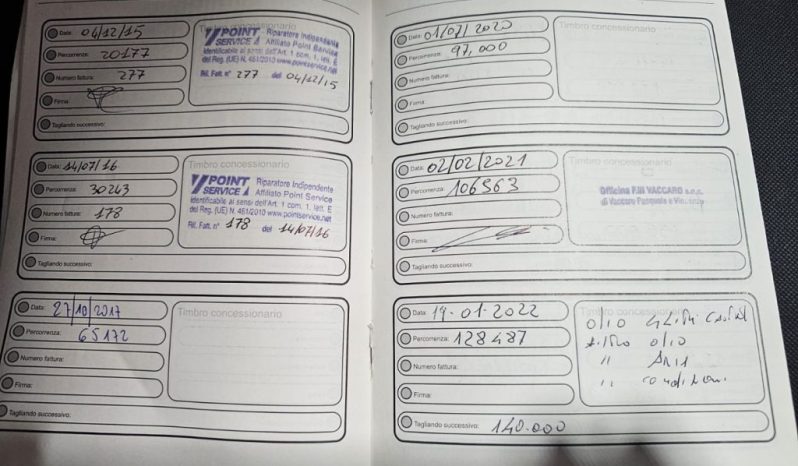 Data: 04/12/15
Timbro concessionario
Percorrenza: 20177
Numero fattura: 277
Firma:
POINT SERVICE Riparatore Indipendente
Affiliato Point Service
identificabile ai sensi dell'Art. 1 com. 1, lett. E
del Reg. (UE) N. 461/2010 www.pointservice.net
Rif. Fatt. n° 277 del 04/12/15
Tagliando successivo:
Data: 14/07/16
Timbro concessionario
Percorrenza: 30243
Numero fattura: 178
Firma:
POINT SERVICE Riparatore Indipendente
Affiliato Point Service
identificabile ai sensi dell'Art. 1 com. 1, lett. E
del Reg. (UE) N. 461/2010 www.pointservice.net
Rif. Fatt. n° 178 del 14/07/16
Tagliando successivo:
Data: 27/10/2017
Timbro concessionario
Percorrenza: 65172
Numero fattura:
Firma:
Tagliando successivo:
Data: 01/07/2020
Timbro concessionario
Percorrenza: 97,000
Numero fattura:
Firma:
Tagliando successivo:
Data: 02/02/2021
Timbro concessionario
Percorrenza: 106563
Numero fattura:
Firma:
Officina F.lli VACCARO s.n.c.
di Vaccaro Pasquale e
Tagliando successivo:
Data: 19-01-2022
Timbro concessionario
Percorrenza: 128487
Numero fattura:
Firma:
olio
filtro olio
" ARIA
"
Tagliando successivo: 140.000